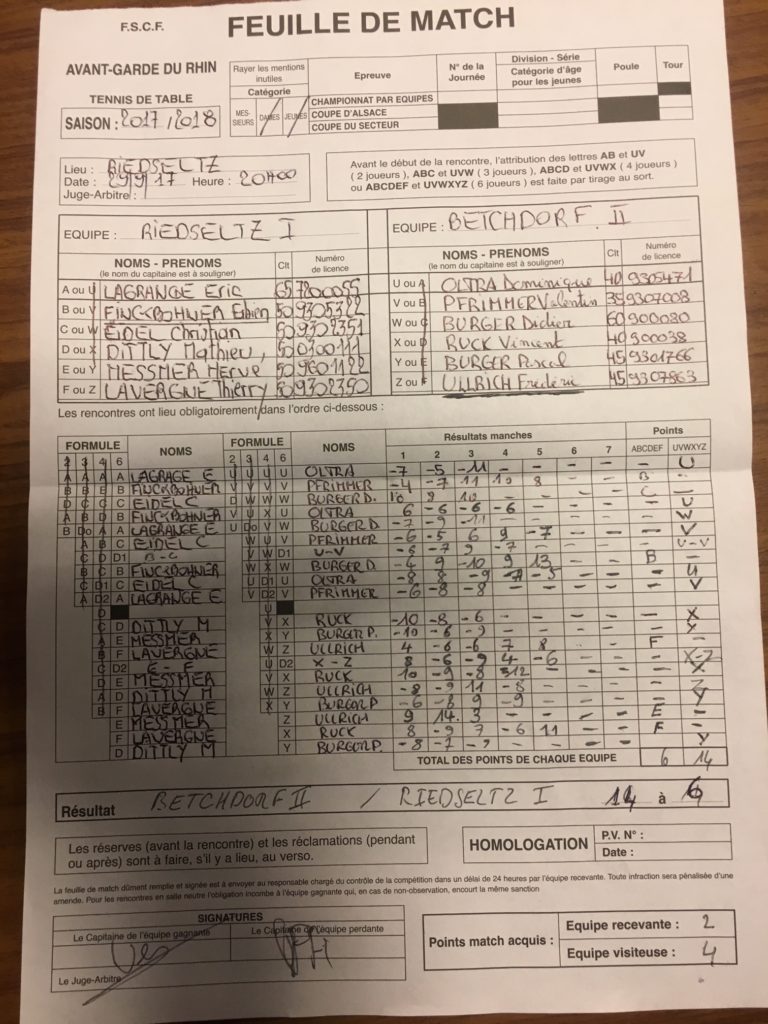 F.S.C.F. FEUILLE DE MATCH
AVANT-GARDE DU RHIN
TENNIS DE TABLE
SAISON : 2017/2018
Rayer les mentions inutiles
Catégorie
MES-SIEURS DAMES JEUNES
Epreuve
CHAMPIONNAT PAR EQUIPES
COUPE D'ALSACE
COUPE DU SECTEUR
N° de la Journée
Division - Série
Catégorie d'âge pour les jeunes
Poule
Tour
Lieu : RIEDSELTZ
Date : 29/9/17 Heure : 20H00
Juge-Arbitre :
Avant le début de la rencontre, l'attribution des lettres AB et UV
( 2 joueurs ), ABC et UVW ( 3 joueurs ), ABCD et UVWX ( 4 joueurs )
ou ABCDEF et UVWXYZ ( 6 joueurs ) est faite par tirage au sort.
EQUIPE : RIEDSELTZ I
NOMS - PRENOMS Clt Numéro de licence
(le nom du capitaine est à souligner)
A ou U LAGRANGE Eric 65 7800055
B ou V 50 9305322
C ou W EIDEL Christian 50 9302351
D ou X DITTLY Mathieu, 50 0300111
E ou Y MESSMER Herve 50 9601122
F ou Z LAVERGNE Thierry 50 9302350
EQUIPE : BETCHDORF. II
NOMS - PRENOMS Clt Numéro de licence
(le nom du capitaine est à souligner)
U ou A OLTRA Dominique 40 9305471
V ou B PFRIMMER Valentin 35 9307008
W ou C BURGER Didier 60 900080
X ou D RUCK Vincent 40 900038
Y ou E BURGER Pascal 45 9301766
Z ou F ULLRICH Frédéric 45 9307863
Les rencontres ont lieu obligatoirement dans l'ordre ci-dessous :
FORMULE NOMS FORMULE NOMS Résultats manches Points
2 3 4 6 2 3 4 6 1 2 3 4 5 6 7 ABCDEF UVWXYZ
A LAGRAGE E U OLTRA -7 -5 -11 - - - - - U
B FINCKBOHNER V PFRIMMER -4 -7 11 10 8 - - B -
C EIDEL C W BURGER D. 10 9 10 - - - - C -
B FINCKBOHNER U OLTRA 6 -6 -6 -6 - - - - U
A LAGRANGE E W BURGER D -7 -9 -11 - - - - - W
C EIDEL C V PFRIMMER -6 -5 6 9 -7 - - - V
D1 B-C D1 U-V -6 -7 9 -7 - - - - U-V
B FINCKBOHNER W BURGER D -4 9 -10 9 13 - - B -
C EIDEL C U OLTRA -8 8 -9 -5 - - - U
A LAGRANGE E V PFRIMMER -6 -8 -8 - - - - - V
D DITTLY M X RUCK -10 -8 -6 - - - - - X
E MESSMER Y BURGER P. -10 -6 -9 - - - - -
F LAVERGNE Z ULLRICH 4 -6 -6 7 8 - - F -
D2 E-F D2 X-Z 8 -6 -9 4 -6 - - - X-Z
E MESSMER X RUCK 10 -9 -8 - - - -
D DITTLY M Z ULLRICH -8 -9 11 -8 - - - - Z
F LAVERGNE Y BURGER P -6 -8 9 -9 - - - - Y
E MESSMER Z ULLRICH 9 14. 3 - - - - E -
F LAVERGNE X RUCK 8 -9 7 -6 11 - - F -
D DITTLY M Y BURGER P. -8 -7 -9 - - - - - Y
TOTAL DES POINTS DE CHAQUE EQUIPE 6 14
Résultat BETCHDORF II / RIEDSELTZ I 14 à 6
Les réserves (avant la rencontre) et les réclamations (pendant
ou après) sont à faire, s'il y a lieu, au verso.
HOMOLOGATION
P.V. N° :
Date :
La feuille de match dûment remplie et signée est à envoyer au responsable chargé du contrôle de la compétition dans un délai de 24 heures par l'équipe recevante. Toute infraction sera pénalisée d'une
amende. Pour les rencontres en salle neutre l'obligation incombe à l'équipe gagnante qui, en cas de non-observation, encourt la même sanction
SIGNATURES
Le Capitaine de l'équipe gagnante Le Capitaine de l'équipe perdante
Le Juge-Arbitre
Points match acquis :
Equipe recevante : 2
Equipe visiteuse : 4